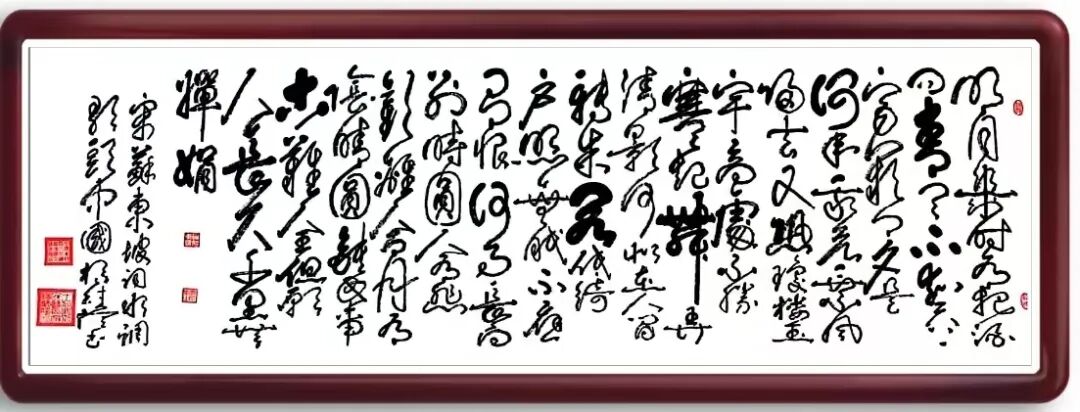 明月幾时有把酒
问青天不知天上
宫阙今夕是
何年我欲乘风
归去又恐瓊樓玉
宇高處不勝
寒起舞弄
清影何似在人间
转朱阁低绮
户照無眠不应
有恨何事长向
别時圓人有悲
歡離合月有
陰晴圓缺此事
古難全但願
人長久千里共
嬋娟
宋蘇東坡词水調
歌頭